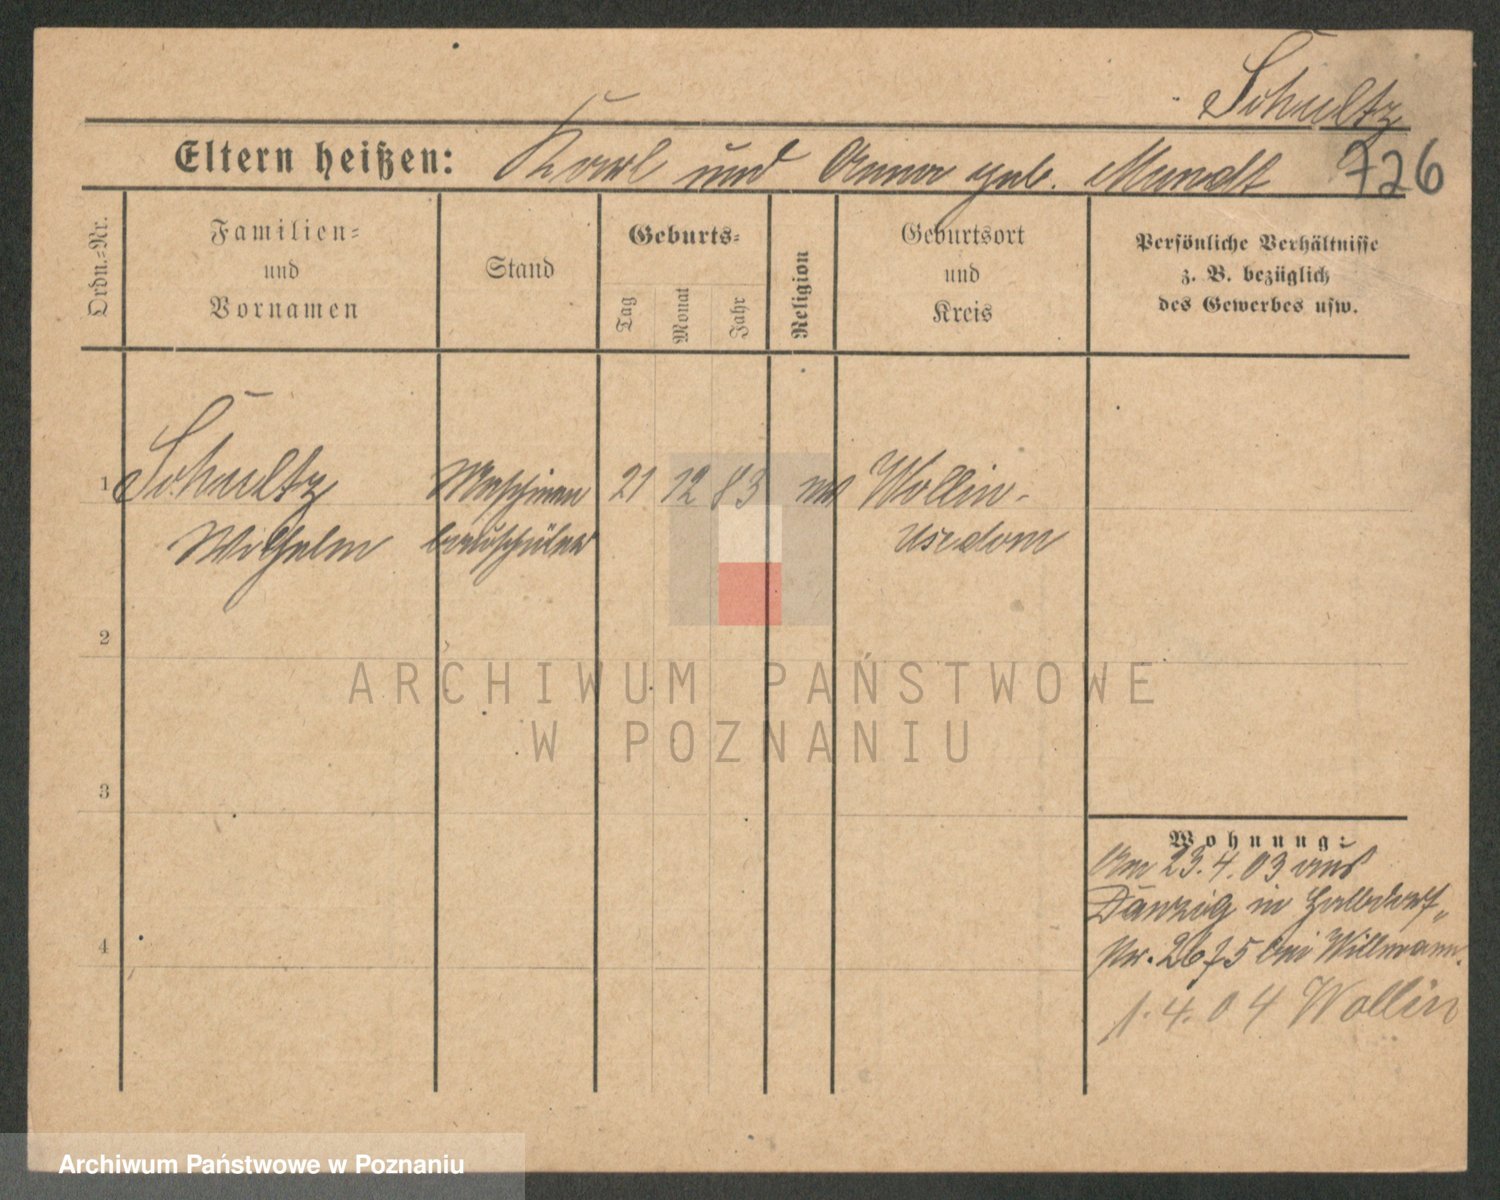 Schultz
Eltern heißen: Karl und Anna geb. Mundt
726
Ordn.-Nr.
Familien-
und
Vornamen
Stand
Geburts-
Tag
Monat
Jahr
Religion
Geburtsort
und
Kreis
Persönliche Verhältnisse
z. B. bezüglich
des Gewerbes usw.
1 Schultz Maschinen 21 12 83 Wollin-
Wilhelm bauschüler Usedom
2
ARCHIWUM PAŃSTWOWE
W POZNANIU
3
Wohnung:
Am 23.4.03 aus
Danzig in
4
Nr. 2675 bei Willmann.
1.4.04 Wollin
Archiwum Państwowe w Poznaniu